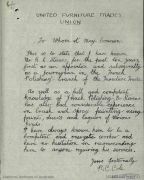 UNITED FURNITURE TRADES
UNION
To Whom it May Concern
This is to state that I have known
Mr. R. E. for the past few years,
first as an apprentice and subsequently
as a journeyman in the French
Polishing branch of the Furniture Trade.
As well as a full and competent
knowledge of French Polishing Mr.
has also had considerable experience
in and spray painting using
and lacquers of various
kinds.
I have always known him to be a
competent and energetic worker and
have no hesitation in recommending
him to anyone requiring his services.
Yours fraternally